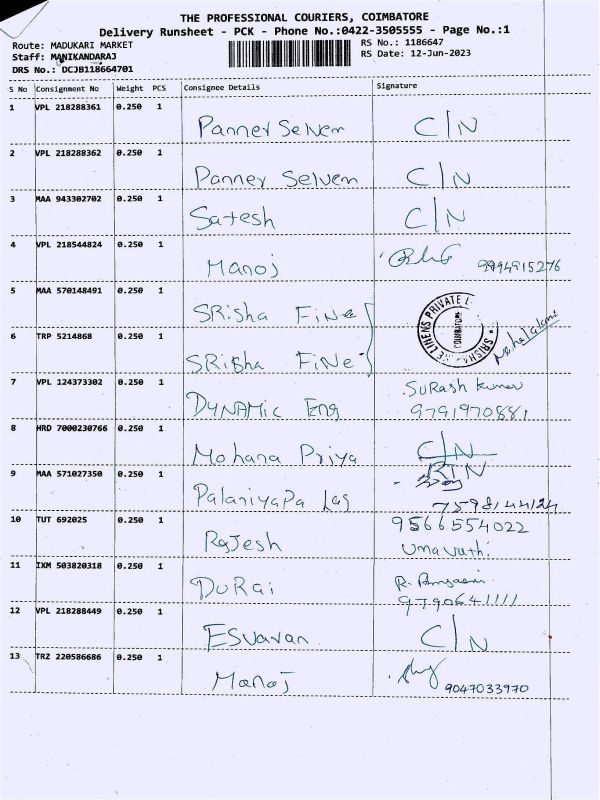 THE PROFESSIONAL COURIERS, COIMBATORE
Delivery Runsheet - PCK - Phone No.:0422-3505555 - Page No.:1
Route: MADUKARI MARKET RS No.: 1186647
Staff: MANIKANDARAJ RS Date: 12-Jun-2023
DRS No.: DCJB118664701
S No Consignment No Weight PCS Consignee Details Signature
1 VPL 218288361 0.250 1 Panner Selvem C/N
2 VPL 218288362 0.250 1 Panner Selvem C/N
3 MAA 943302702 0.250 1 Satesh C/N
4 VPL 218544824 0.250 1 Manoj 9994915276
5 MAA 570148491 0.250 1 SRisha FiNe
6 TRP 5214868 0.250 1 SRisha FiNe
7 VPL 124373302 0.250 1 DYNAMIC Eng SuRash Kumar
9791970881
8 HRD 7000230766 0.250 1 Mohana Priya C/N
RTN
9 MAA 571027350 0.250 1 Palaniyapa Lag
10 TUT 692025 0.250 1 Rajesh 9566554022
Umavathi
11 IXM 503820318 0.250 1 DuRai
9790641111
12 VPL 218288449 0.250 1 Esvaran C/N
13 TRZ 220586686 0.250 1 Manoj 9047033970